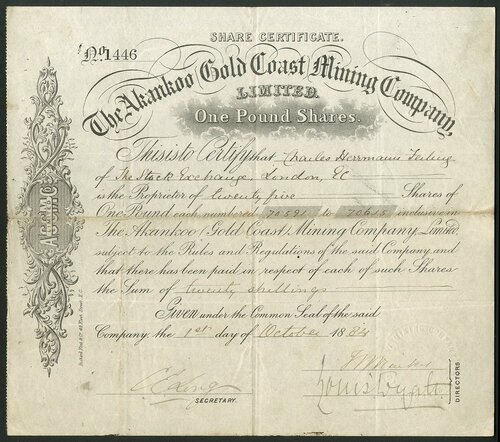 SHARE CERTIFICATE.
No. 1446
The Akankoo Gold Coast Mining Company,
LIMITED.
One Pound Shares.
This is to Certify that Charles Herrmann
of The Stock Exchange, London, EC
is the Proprietor of twenty five Shares of
One Pound each numbered 70591 to 70615 inclusive in
The Akankoo (Gold Coast) Mining Company, Limited,
subject to the Rules and Regulations of the said Company and
that there has been paid in respect of each of such Shares
the Sum of twenty shillings
Given under the Common Seal of the said
Company, the 1st day of October 1884
SECRETARY.
DIRECTORS